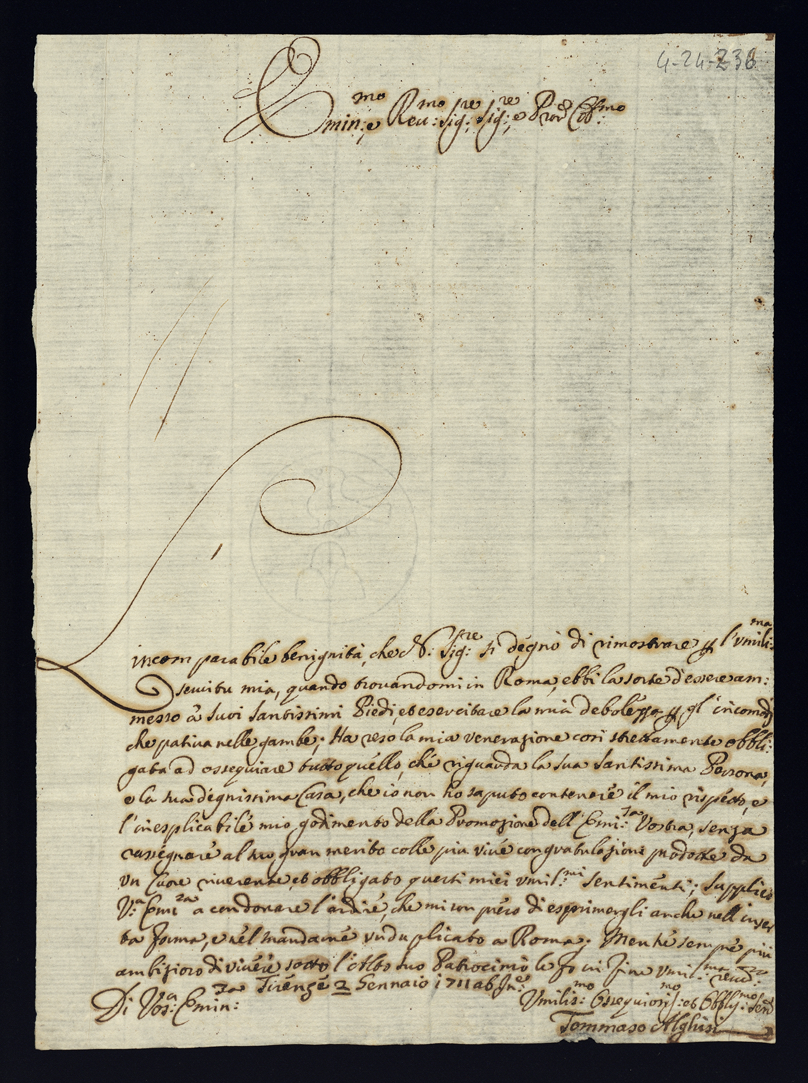 4-24-238
Emin:mo e Reu:mo Sig:re Sig:re, e Pron Cob:mo
incomparabile benignità, che N: Sig:re si degnò di rimostrare p l'umili:ma
seruitu mia, quando trouandomi in Roma, ebbi la sorte d'essere am:
messo à Suoi Santissimi Piedi, et esercitare la mia debolezza p gl'incomodi
che patiua nelle gambe; Ha reso la mia venerazione così strettamente obbli:
gata ad ossequiare tutto quello, che riguarda la sua Santissima Persona,
e la sua degnissima Casa, che io non hò saputo contenere il mio rispetto, e
l'inesplicabile mio godimento della Promozione dell'Emi:za Vostra, senza
rassegnare al suo gran merito colle più viue congratulazioni prodotte da
un Cuore riuerente, et obbligato questi miei umil:mi sentimenti; Supplico
V:a Emi:za a condonare l'ardire, che mi son preso di esprimergli anche nell'
ta forma, e nel mandarne un duplicato a Roma; Mentre sempre più
ambizioso di viuere sotto l'Alto suo Patrocinio le fo in fine umil:ma reuer:za
Di Vos:a Emin:za Firenze 2 Gennaio 1711 ab In:e
Vmilis:mo Ossequiosis:mo et Obblig:mo Ser:
Tommaso Alghisi